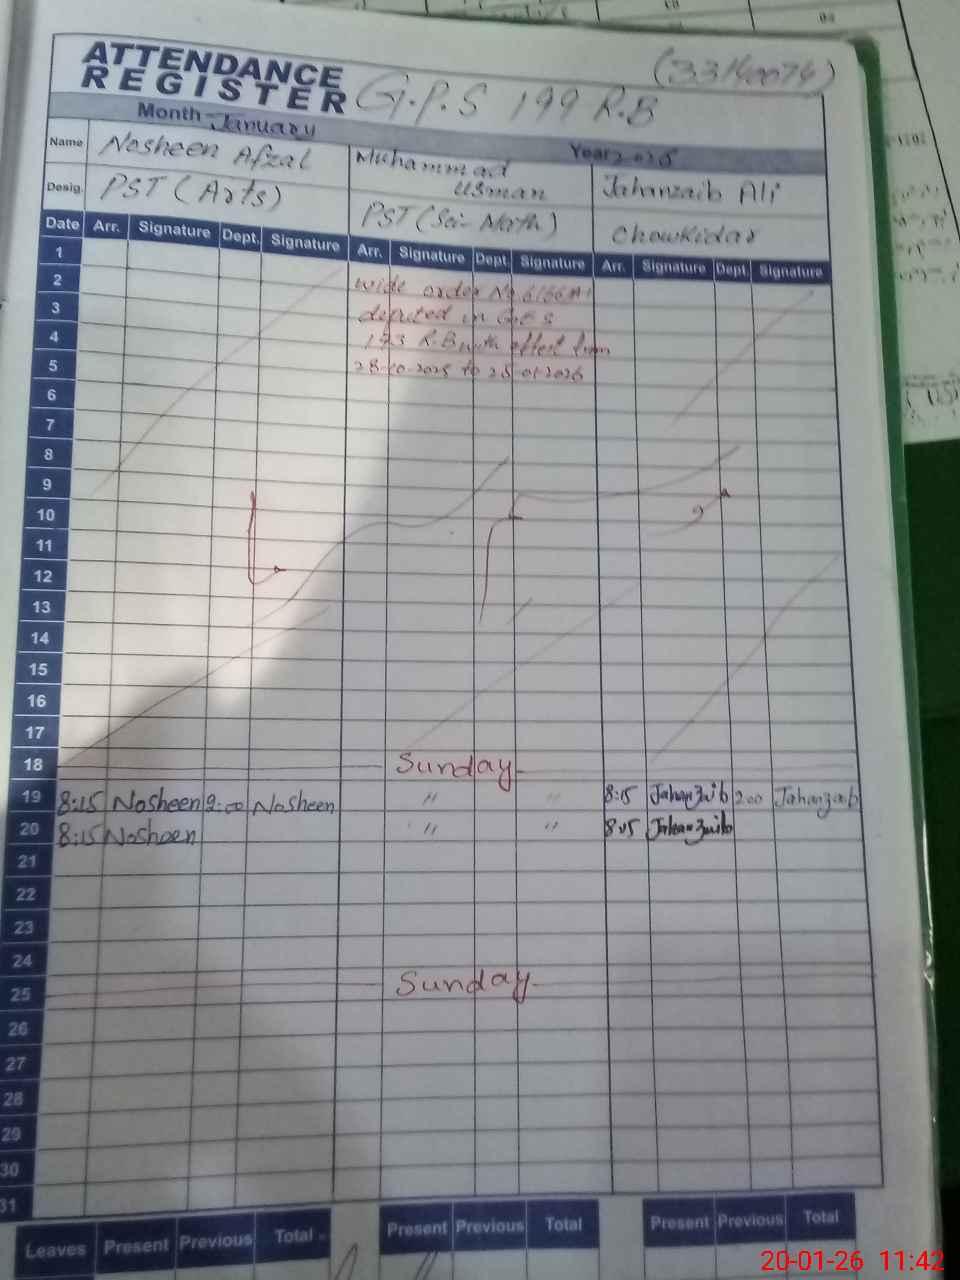 ATTENDANCE
REGISTER
(33140074)
G.P.S 199 R.B
Month January
Year 2026
Name Nosheen Afzal Muhammad Usman Jahanzaib Ali
Desig. PST (Arts) PST (Sci-Math) Chowkidar
Date Arr. Signature Dept. Signature Arr. Signature Dept. Signature Arr. Signature Dept. Signature
1
2 wide order No
3 deputed in
4 R.B with effect from
5 28-10-2025 to 25-01-2026
6
7
8
9
10
11
12
13
14
15
16
17
18 Sunday
19 8:15 Nosheen 2:00 Nosheen " " 8:15 Jahanzaib 2:00 Jahanzaib
20 8:15 Nosheen " " 8:15 Jahanzaib
21
22
23
24
25 Sunday
26
27
28
29
30
31
Leaves Present Previous Total Present Previous Total Present Previous Total
20-01-26 11:42